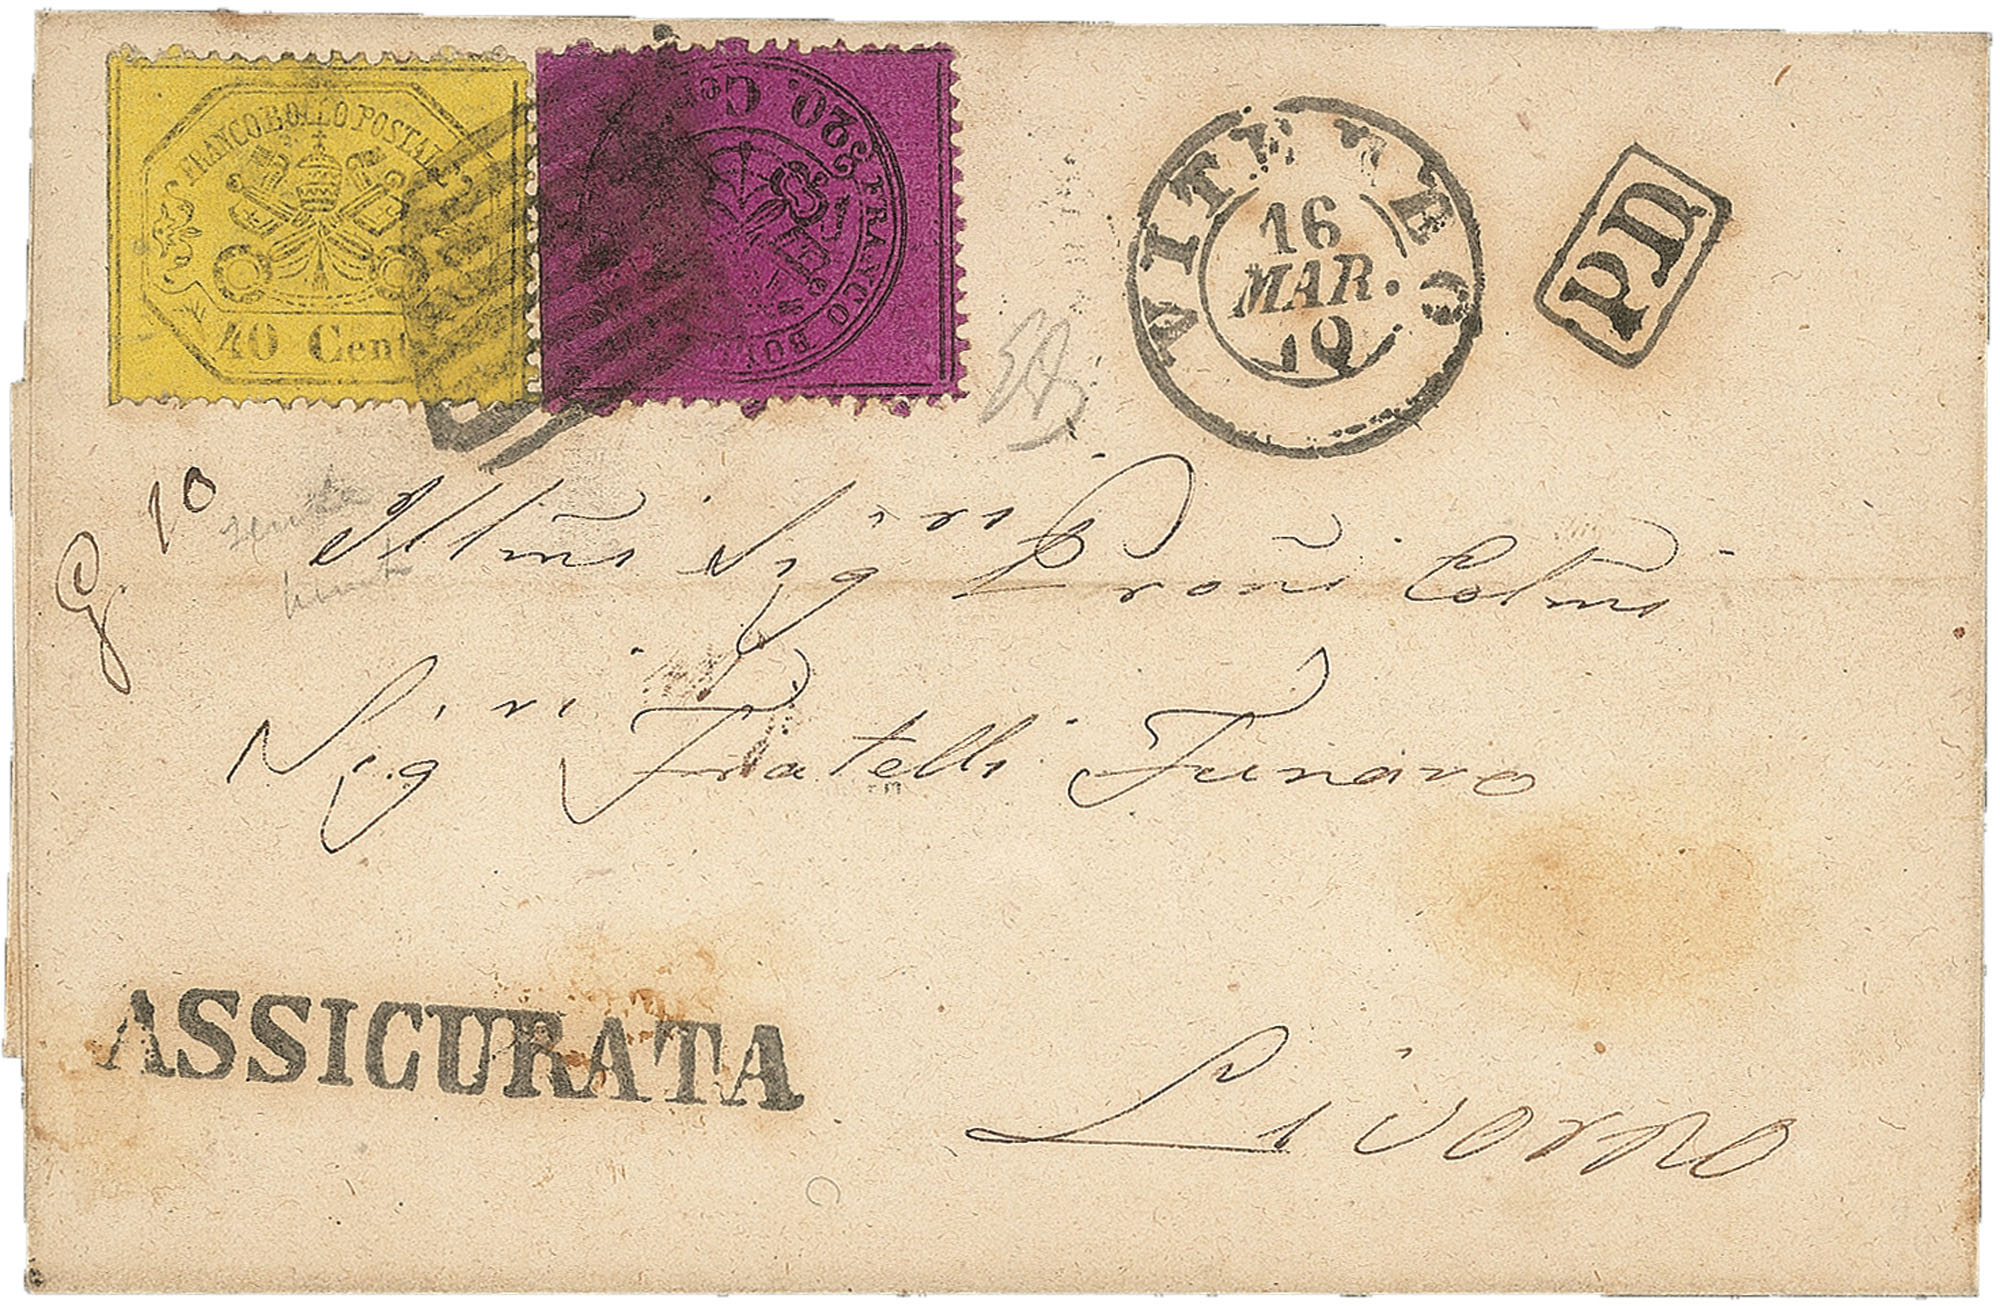 FRANCOBOLLO POSTALE
40 Cent
20. Cen
FRANCO BOL
VITERBO
16
MAR.
70
PD
G. 10
Illmi Sigri Proni Colmi
Sigri Fratelli Funaro
ASSICURATA
Livorno